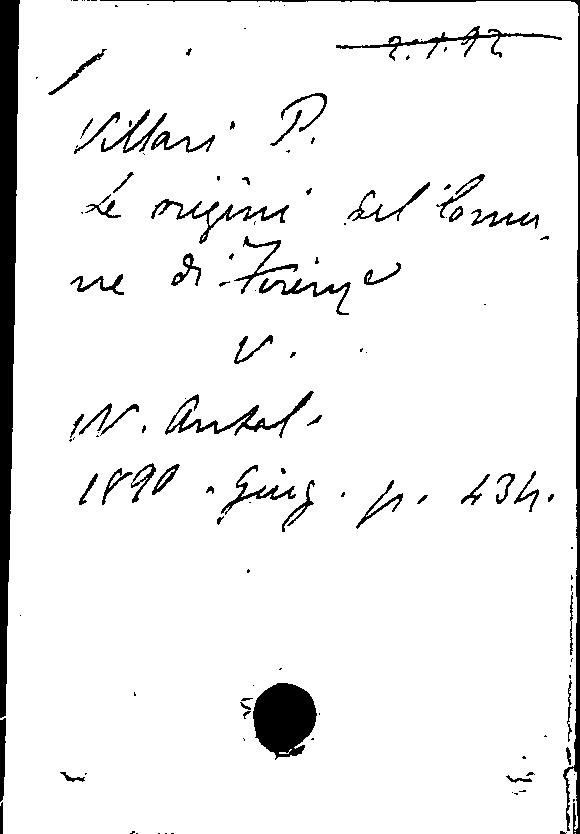 2.1.92
Villari P.
Le origini del Comu-
ne di Firenze
V.
N. Antol.
1890. Giug. p. 434.